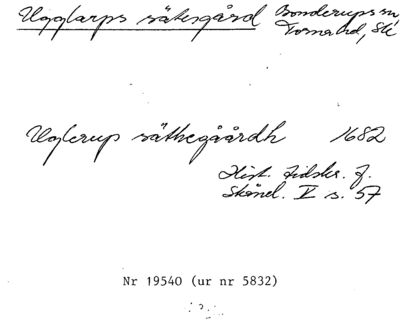 Ugglarps sätesgård Bonderups sn,
Torna hd, Skå
Uglerup säthegåårdh 1682
Hist. tidskr. f.
Skånel. V s. 57
Nr 19540 (ur nr 5832)